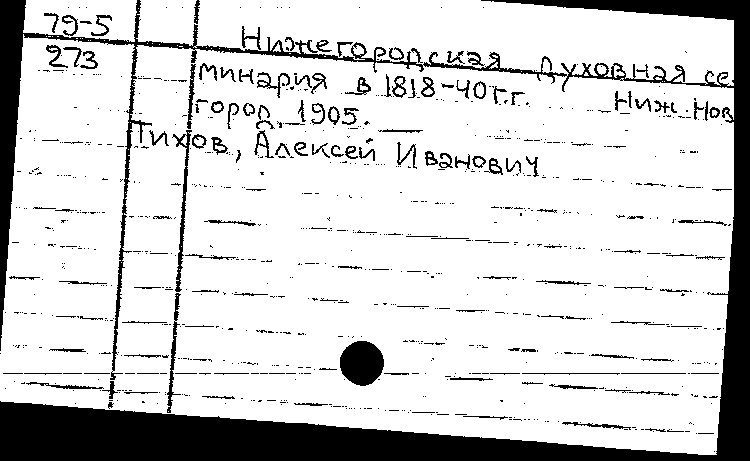 79-5
273
Нижегородская духовная се-
минария в 1818-40г.г. Ниж.Нов
город, 1905. —
Тихов, Алексей Иванович